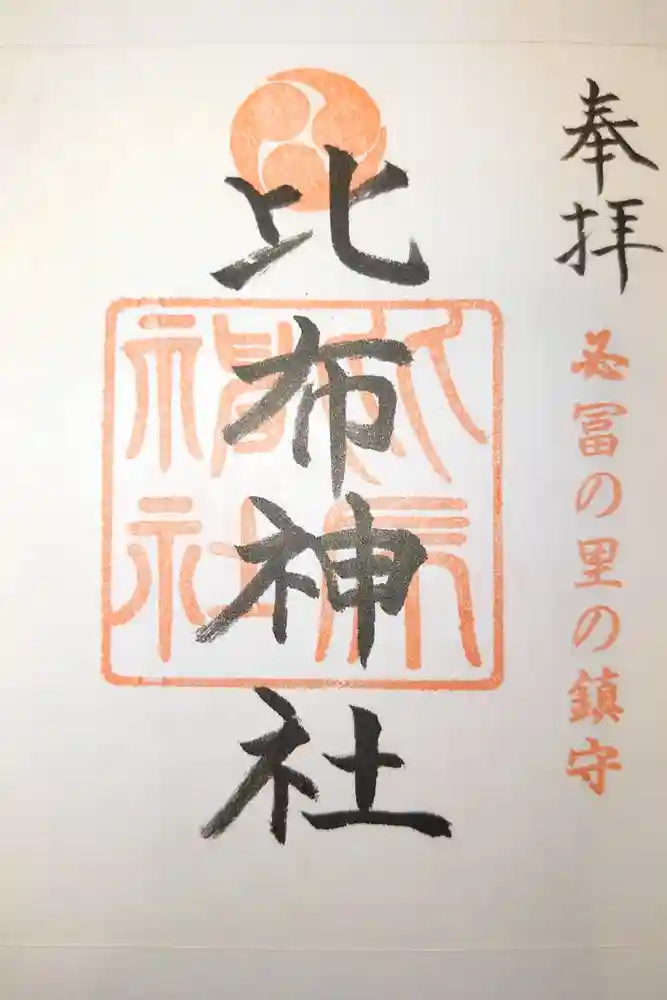 奉拝
必冨の里の鎮守
比布神社
比布神社